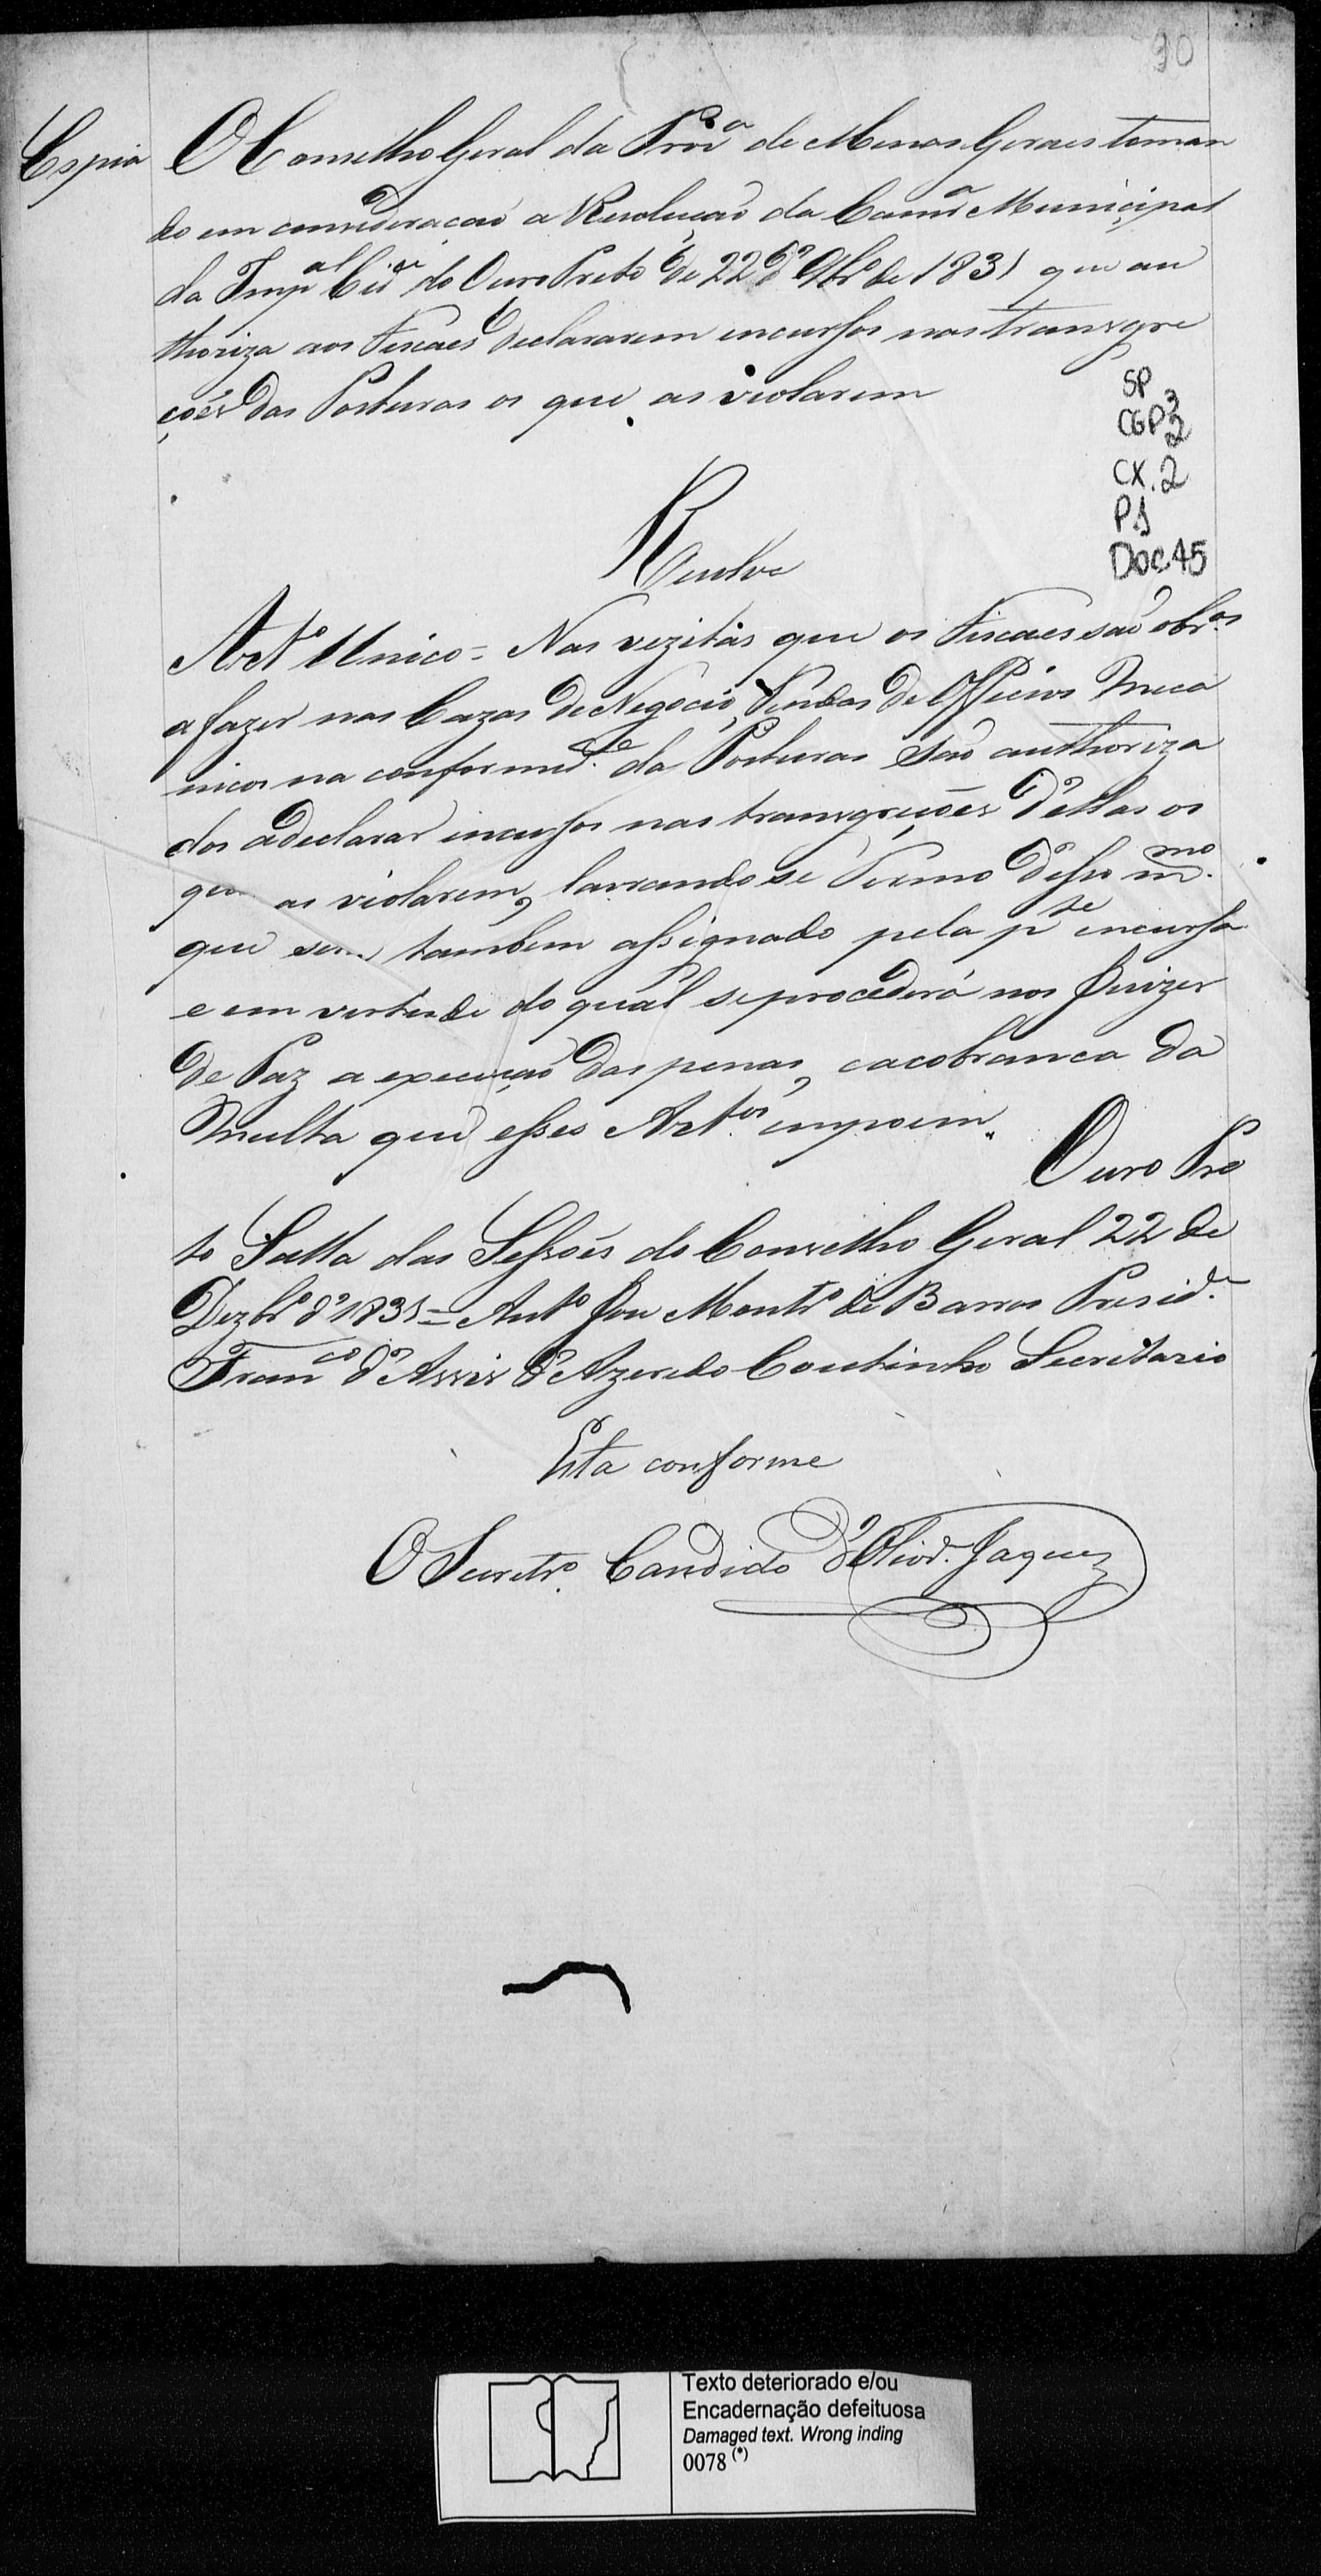 90
Copia
O Conselho Geral da Prov.ª de Minas Geraes toman
do em consideração a Resolução da Camrª Municipal
da Imp.al Cid.e do Ouro Preto de 22 d'9br.º de 1831 que au
thoriza aos Fiscaes declararem incursos nas transgre
ções das Posturas os que as violarem
SP
CGP 3
2
CX. 2
P1
Doc. 45
Resolve
Art.º Unico = Nas vezitas que os Fiscaes são obr.os
a fazer nas Cazas de Negocio, Tendas de Officios Meca
nicos na conformid.e da Posturas são authoriza
dos a declarar incursos nas transgreções d'ellas os
que as violarem, lavrando se Termo d'isso m.mo
que também assignado pela p.te incursa
e em vertude do qual se procederá nos Juizes
de Paz a execução das penas, e a cobranca da
Multa que esses Art.os impoem.
Ouro Pre
to Salla das Sessões do Conselho Geral 22 de
Dezbr.º d'1831 = Ant.º Joze Montr.º de Barros Presid.e
Fran.co d'Assis d'Azeredo Coutinho Secretario
Esta conforme
O Secretr.º Candido d'Olivr.ª Jaques
Texto deteriorado e/ou
Encadernação defeituosa
Damaged text. Wrong inding
0078 (*)